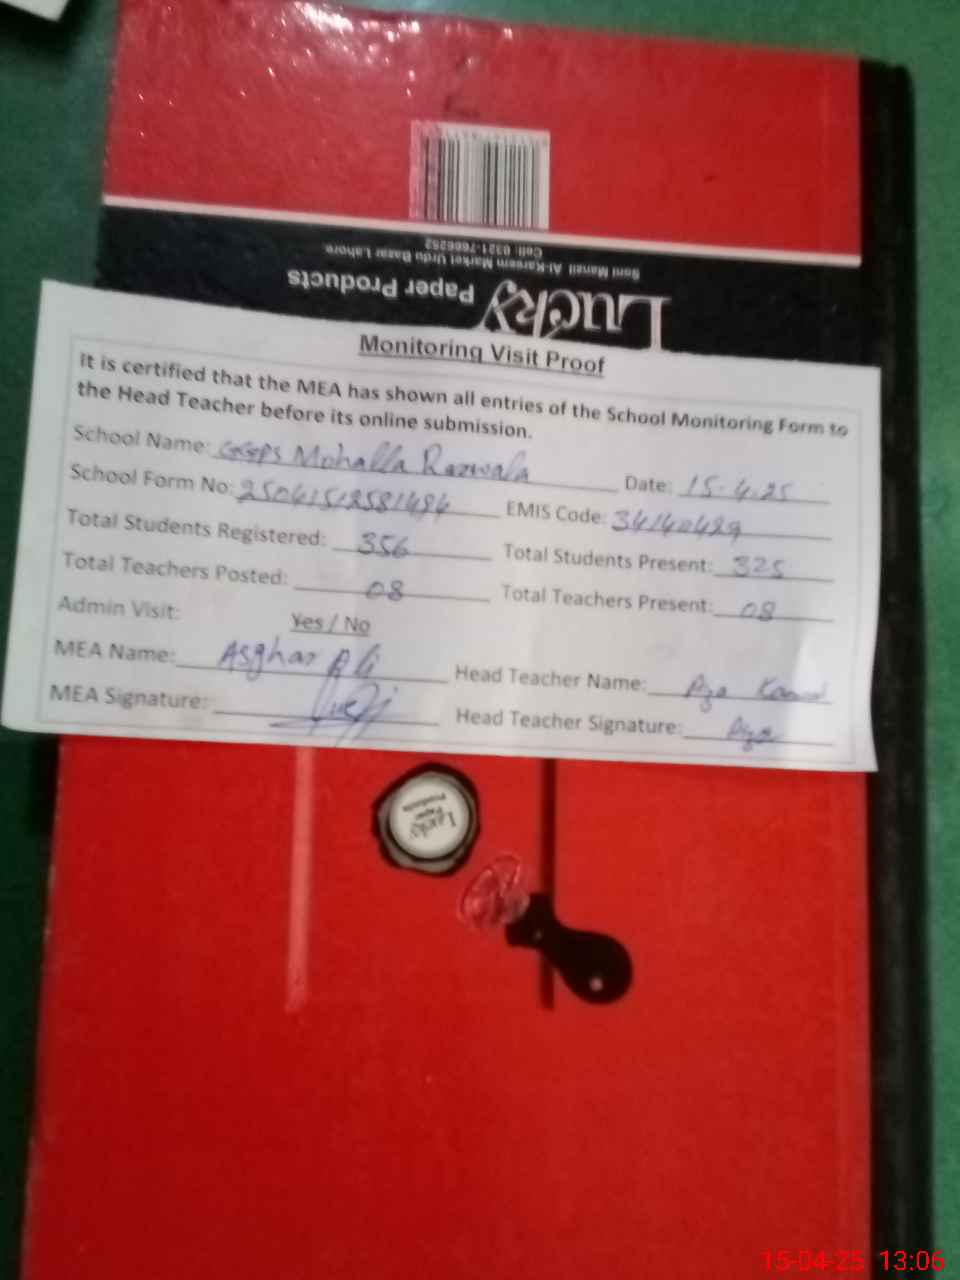 Lucky Paper Products
Soni Manzil Al-Kareem Market Urdu Bazar Lahore.
Cell: 0321-7666252
Monitoring Visit Proof
It is certified that the MEA has shown all entries of the School Monitoring Form to
the Head Teacher before its online submission.
School Name: GGPS Mohalla Date: 15-4-25
School Form No: EMIS Code: 34140429
Total Students Registered: 356 Total Students Present: 325
Total Teachers Posted: 08 Total Teachers Present: 08
Admin Visit: Yes / No
MEA Name: Asghar Ali Head Teacher Name:
MEA Signature: Head Teacher Signature:
Lucky
Paper
Products
15-04-25 13:06